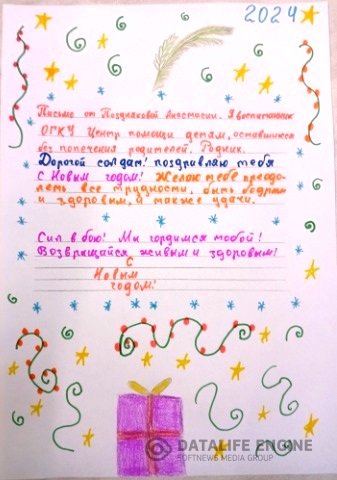 2024
Письмо от Поздняковой Анастасии. Я воспитанник
ОГКУ Центр помощи детям, оставшимся
без попечения родителей. Родник.
Дорогой солдат! поздравляю тебя
С Новым годом! Желаю тебе преодо-
леть все трудности, быть бодрым
и здоровым, а также удачи.
Сил в бою! Мы гордимся тобой!
Возвращайся живым и здоровым!
С
Новым
годом!
DATALIFE ENGINE
SOFTNEWS MEDIA GROUP